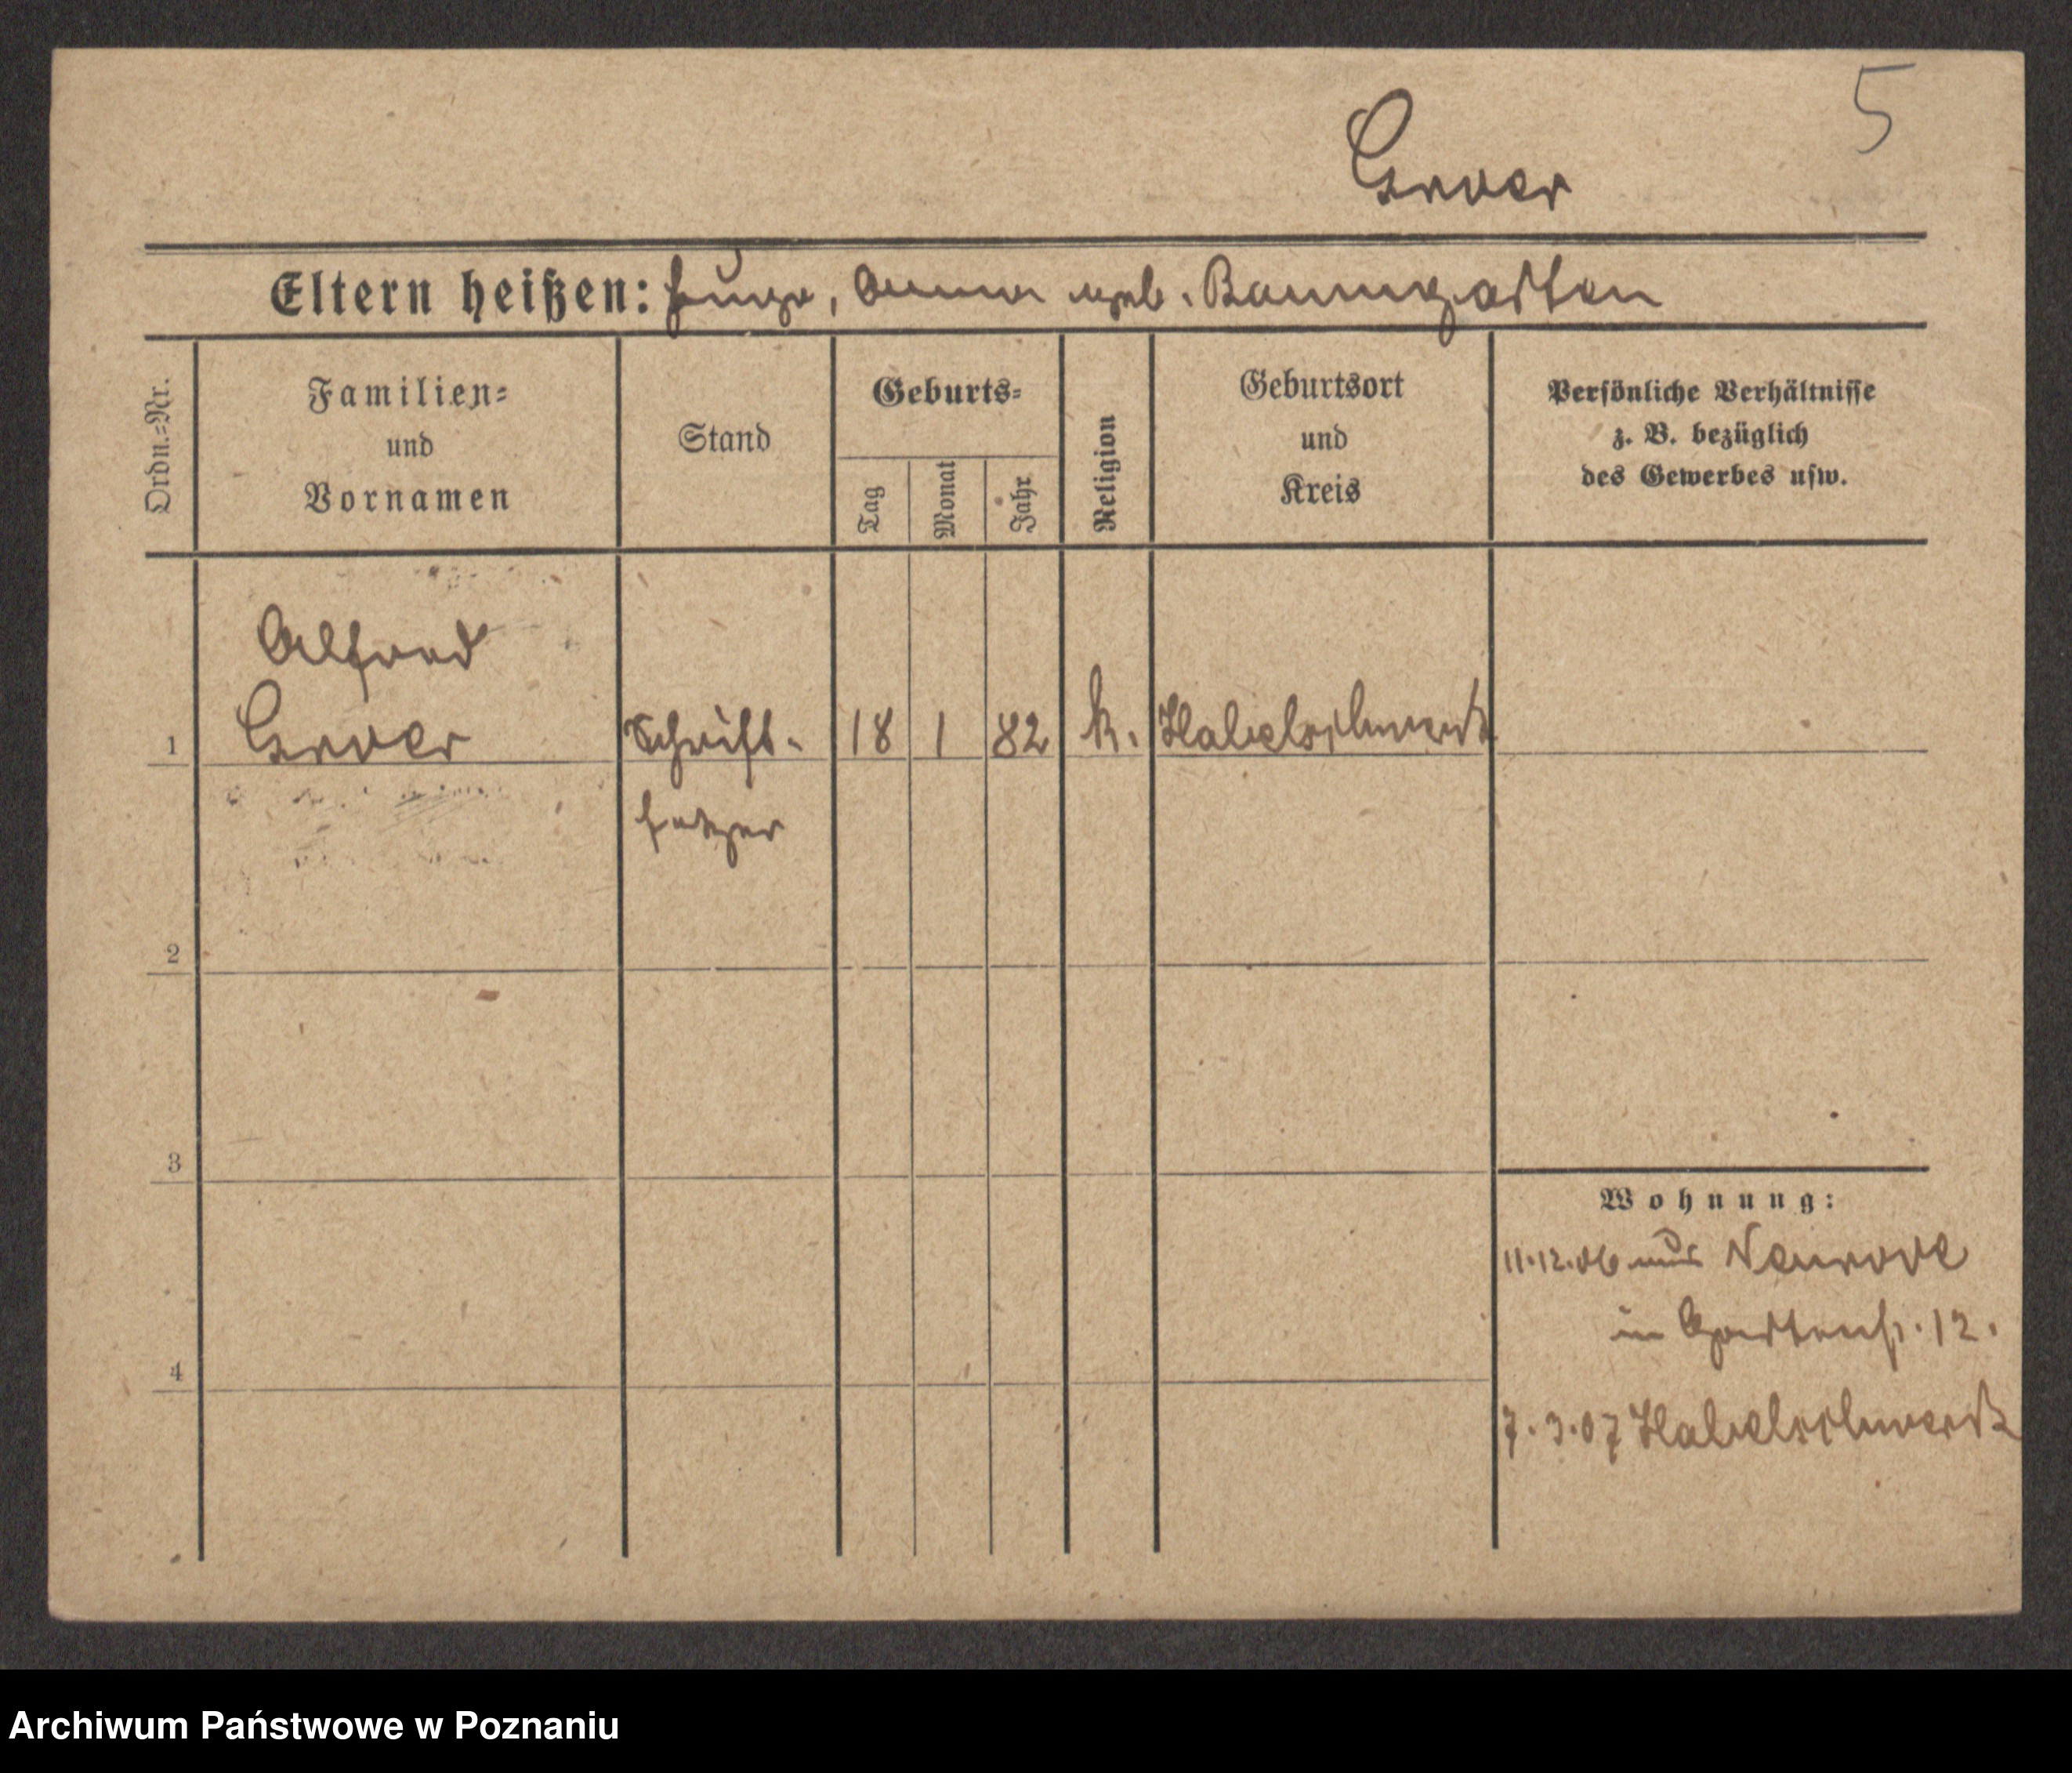 5
Exner
Eltern heißen: Hugo, Anna geb. Baumgarten
Ordn.=Nr.
Familien=
und
Vornamen
Stand
Geburts=
Tag
Monat
Jahr
Religion
Geburtsort
und
Kreis
Persönliche Verhältnisse
z. B. bezüglich
des Gewerbes usw.
Alfred
1 Schrift- 18 1 82 k. Habelschwerdt
setzer
2
3
4
Wohnung:
11.12.06 aus Neurode
in Gartenstr. 12.
7.3.07 Habelschwerdt
Archiwum Państwowe w Poznaniu